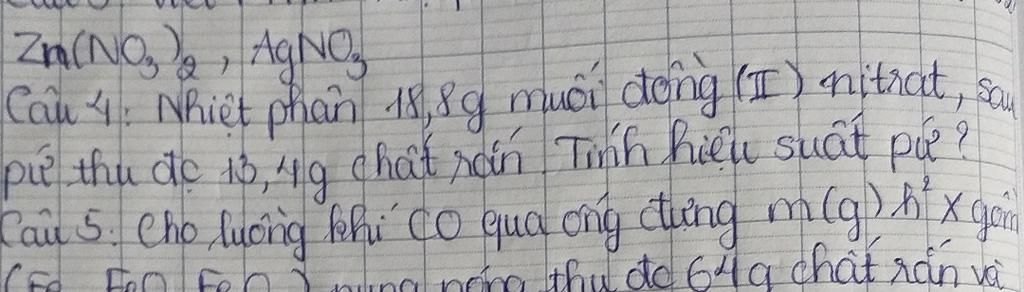 Zn(NO₃)₂, AgNO₃
Câu 4: Nhiệt phân 18,8g muối đồng (II) nitrat, sau
pứ thu đc 13,4g chất rắn Tính hiệu suất pứ?
Câu 5: Cho luồng khí CO qua ống đựng m(g) h² X gồm
nung nóng thu đc 64g chất rắn và